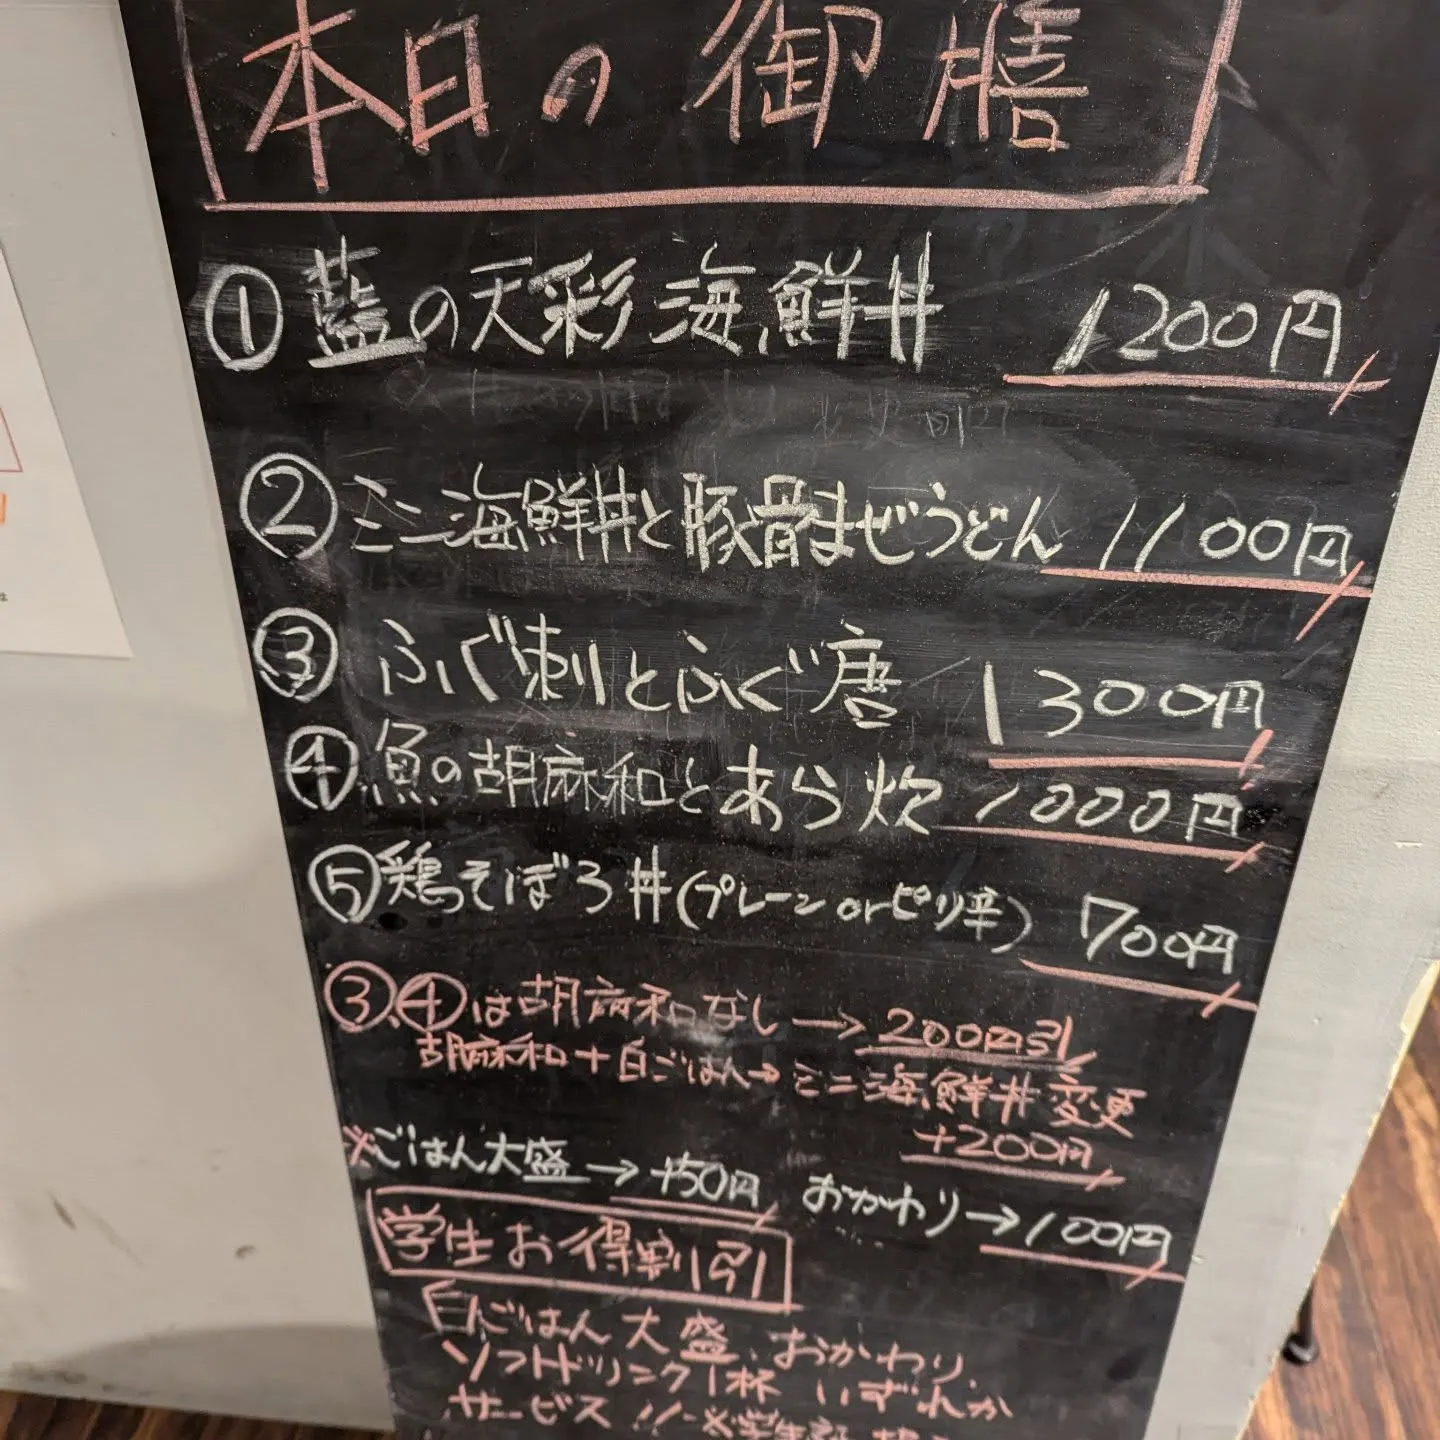 本日の御膳
①藍の天彩海鮮丼 1200円
②ミニ海鮮丼と豚骨まぜうどん 1100円
③ふぐ刺とふぐ唐 1300円
④魚の胡麻和とあら炊 1000円
⑤鶏そぼろ丼(プレーンorピリ辛) 700円
③、④は胡麻和なし→200円引
胡麻和+白ごはん→ミニ海鮮丼変更
+200円
※ごはん大盛→+50円 おかわり→100円
学生お得割引
白ごはん大盛、おかわり、
ソフトドリンク1杯 いずれか
サービス!!※学生